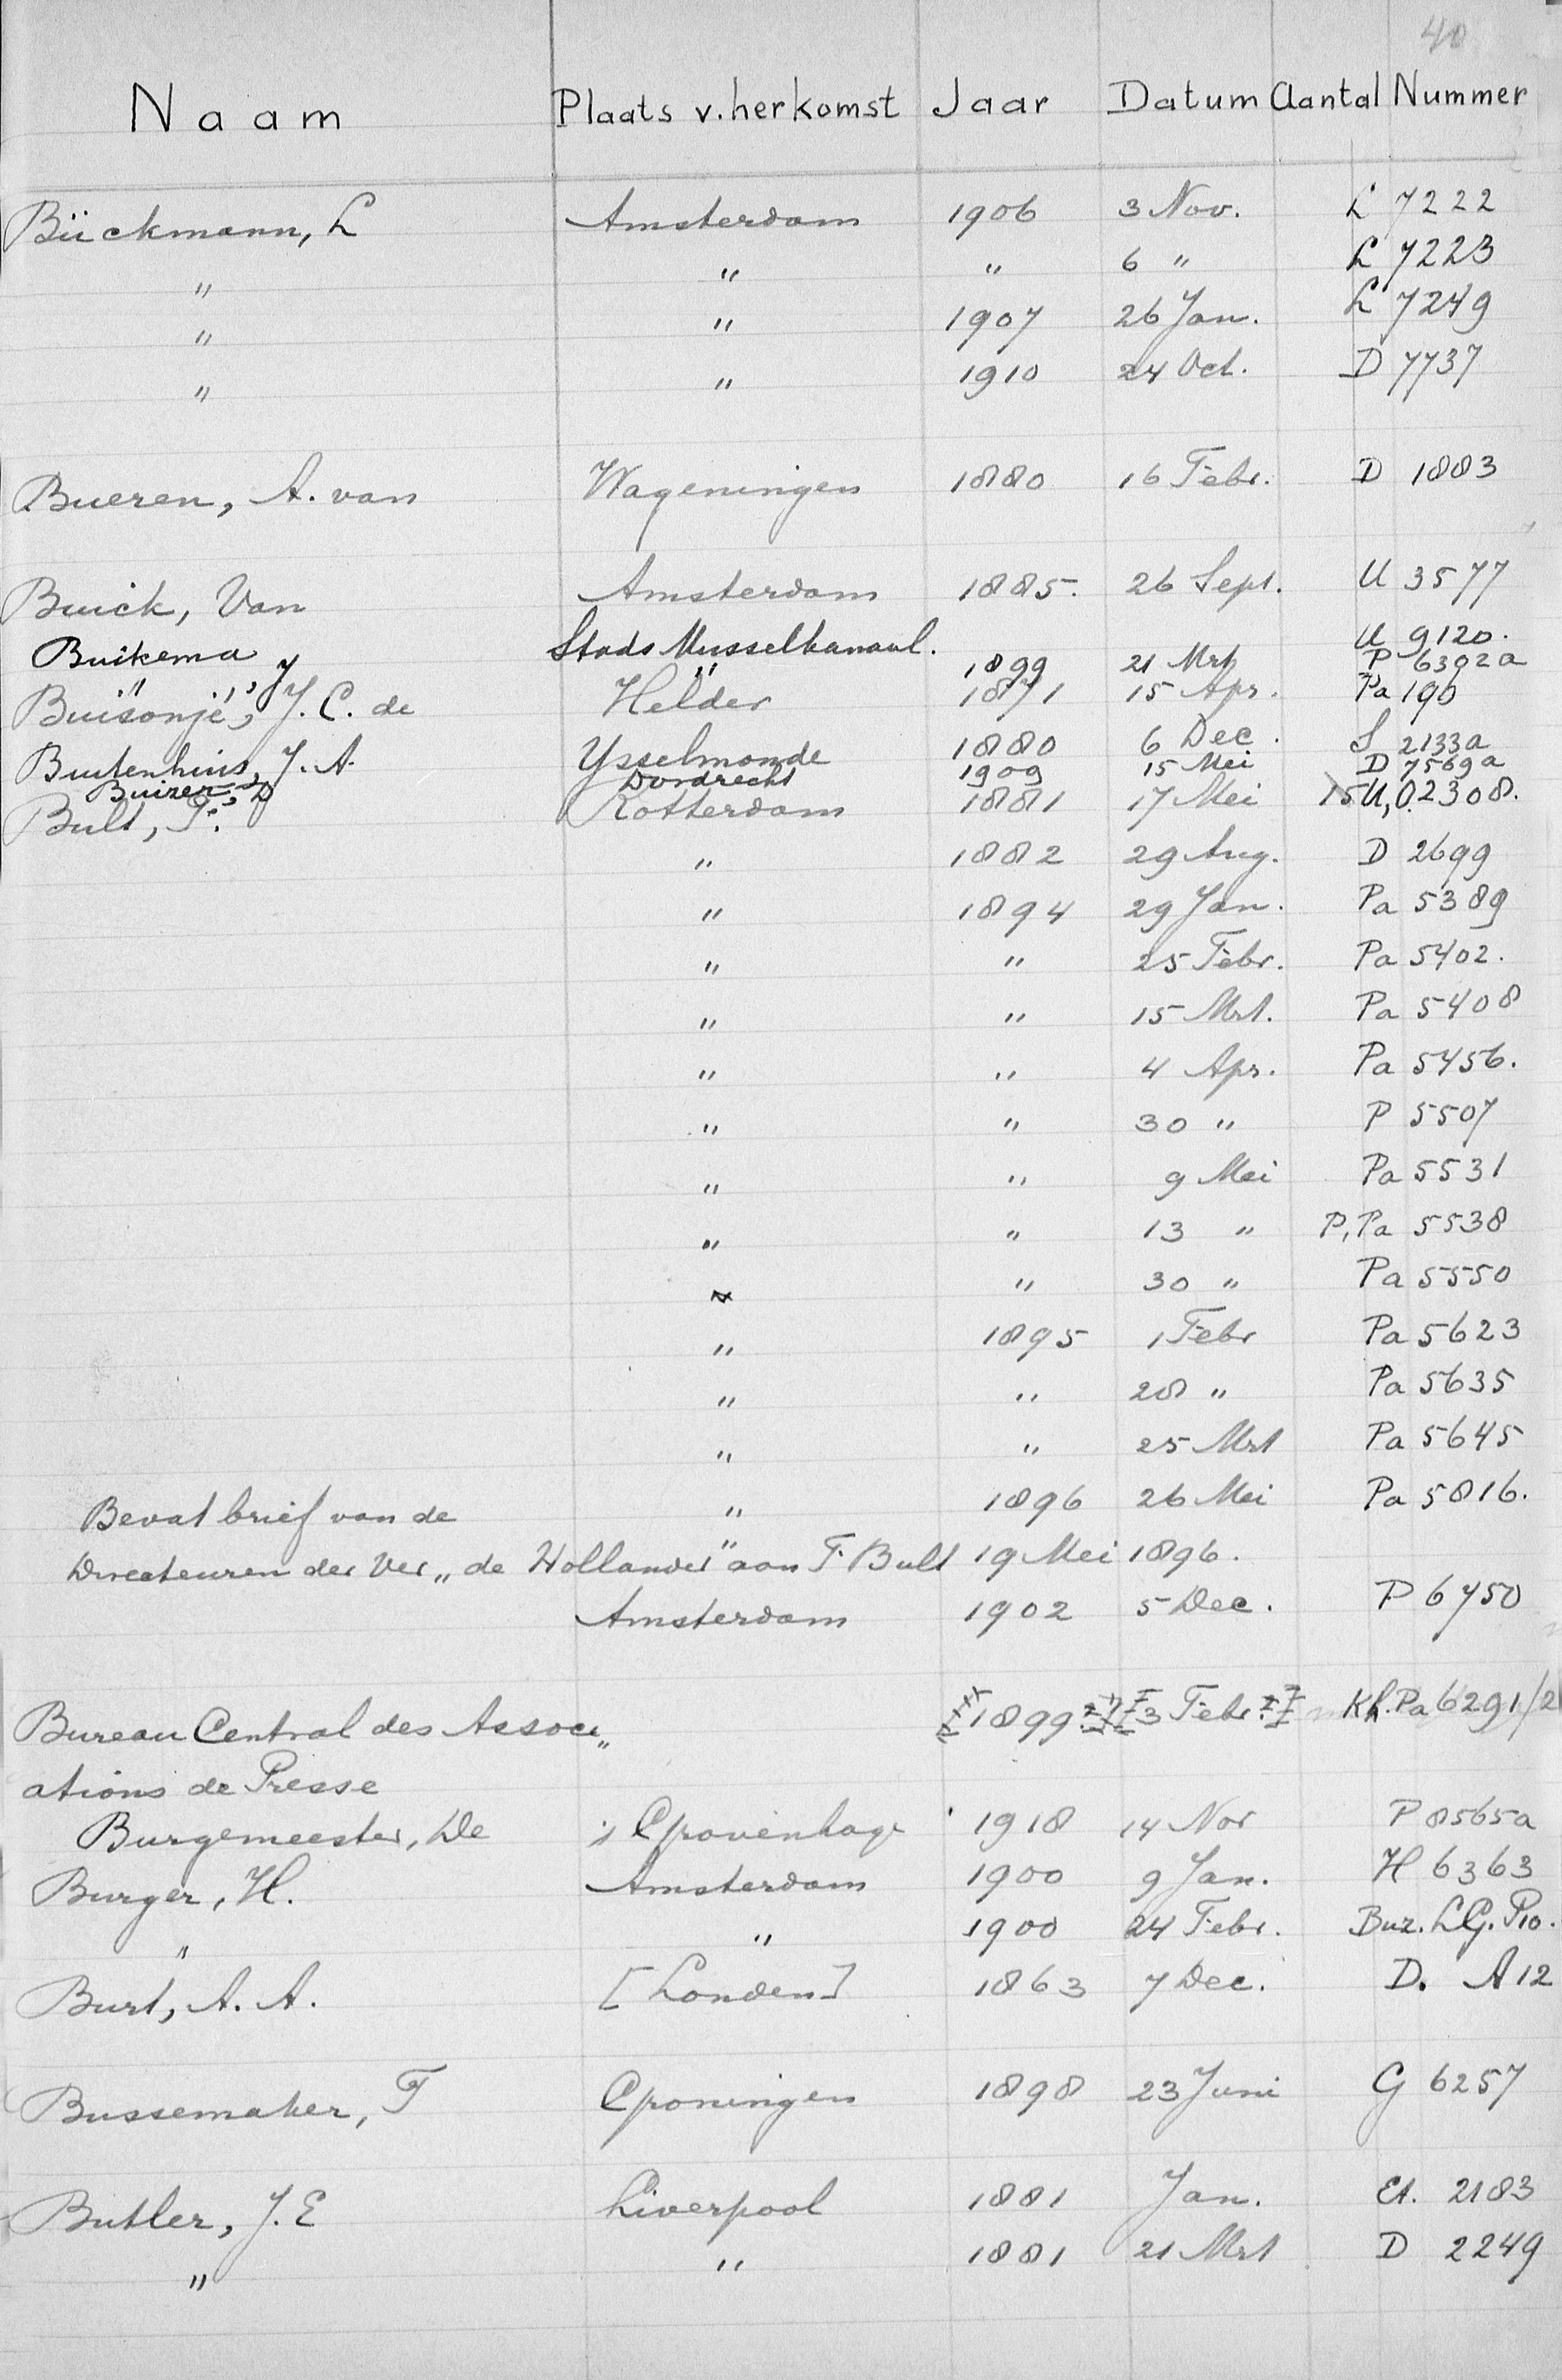 40
Naam Plaats v. herkomst Jaar Datum Aantal Nummer
Bückmann, L Amsterdam 1906 3 Nov. L 7222
" " " 6 " L 7223
" " 1907 26 Jan. L 7249
" " 1910 24 Oct. D 7737
Bueren, A. van Wageningen 1880 16 Febr. D 1883
Buick, Van Amsterdam 1885. 26 Sept. U 3577
Buikema Stads Musselkanaal. U 9120.
" , J " 1899 21 Mrt P 6302a
Buisonjé, J. C. de Helder 1871 15 Apr. Pa 190
Buitenhuis, J. A. Ysselmonde 1880 6 Dec. S 2133a
Buizer, D Dordrecht 1909 15 Mei D 7569a
Bult, F. Rotterdam 1881 17 Mei 15 U, O. 2308.
" 1882 29 Aug. D 2699
" 1894 29 Jan. Pa 5389
" " 25 Febr. Pa 5402.
" " 15 Mrt. Pa 5408
" " 4 Apr. Pa 5456.
" " 30 " P 5507
" " 9 Mei Pa 5531
" " 13 " P, Pa 5538
" " 30 " Pa 5550
" 1895 1 Febr Pa 5623
" " 28 " Pa 5635
" " 25 Mrt Pa 5645
Bevat brief van de " 1896 26 Mei Pa 5816.
Directeuren der Ver „de Hollander" aan F. Bult 19 Mei 1896.
Amsterdam 1902 5 Dec. P 6750
Bureau Central des Associ„ 1899 3 Febr. Kh. Pa 6291/2
ations de Presse
Burgemeester, De 's Gravenhage 1918 14 Nov P 8565a
Burger, H. Amsterdam 1900 9 Jan. H 6363
" " 1900 24 Febr. Buz. L. G. P10.
Burt, A. A. [Londen] 1863 7 Dec. D. A 12
Bussemaker, F Groningen 1898 23 Juni G 6257
Butler, J. E Liverpool 1881 Jan. Et. 2183
" " 1881 21 Mrt D 2249